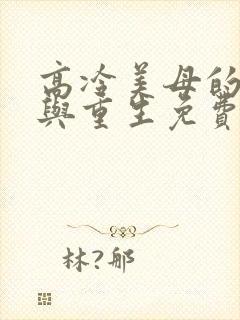 高冷美母的
與重生免費
林?郍